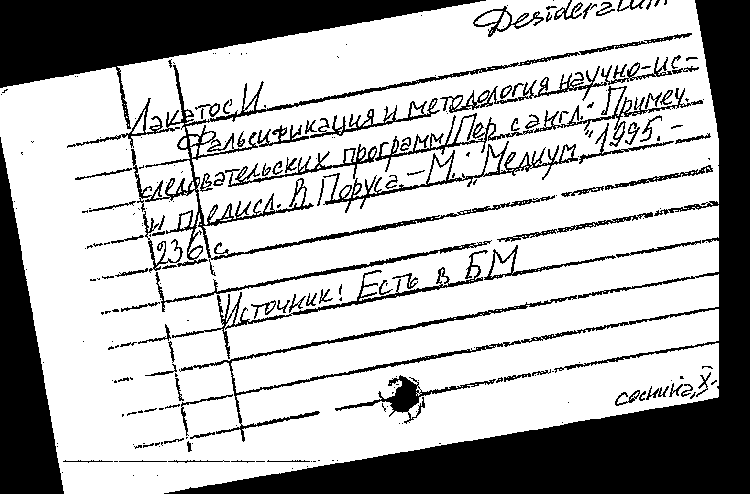 Desideratum
Лакатос, И.
Фальсификация и методология научно-ис-
следовательских программ/Пер. с англ.; Примеч.
и предисл. В. Поруса. – М.: „Медиум", 1995. –
236 с.
Источник: Есть в БМ
соснина, X.